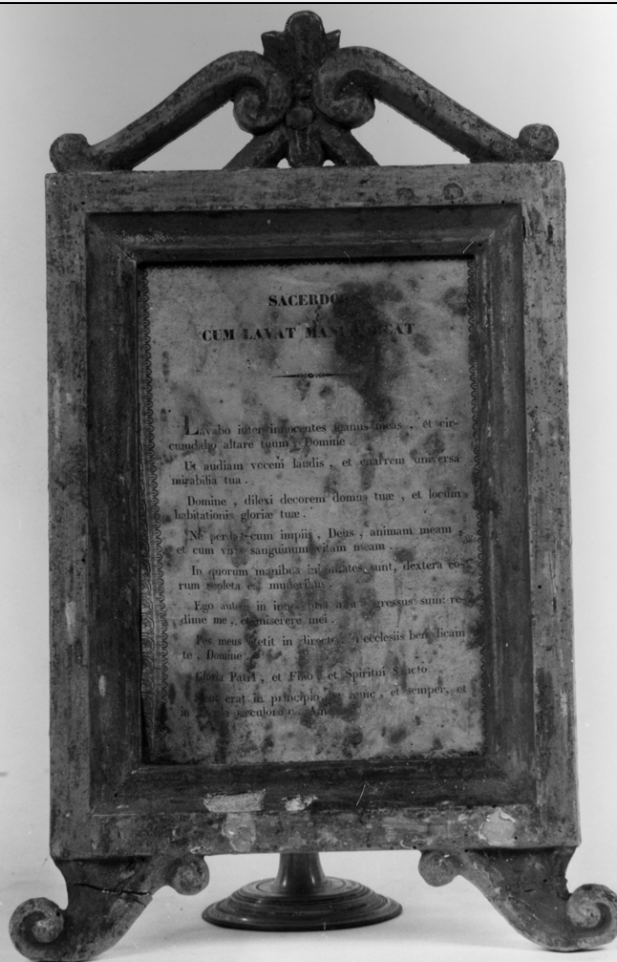 SACERDO
CUM LAVAT
Lavabo inter innocentes manus meas , et cir-
cumdabo altare tuum , Domine .
Ut audiam vocem laudis , et enarrem universa
mirabilia tua .
Domine , dilexi decorem domus tuæ , et locum
habitationis gloriæ tuæ .
Ne perdas cum impiis , Deus , animam meam ,
et cum viris sanguinum vitam meam .
In quorum manibus iniquitates sunt, dextera eo-
rum repleta est muneribus
Ego autem in mea ingressus sum: re-
dime me , et miserere mei
Pes meus stetit in directo ecclesiis benedicam
te , Domine
Gloria Patri , et Filio , et Spiritui Sancto
erat in principio, et nunc , et semper, et
in